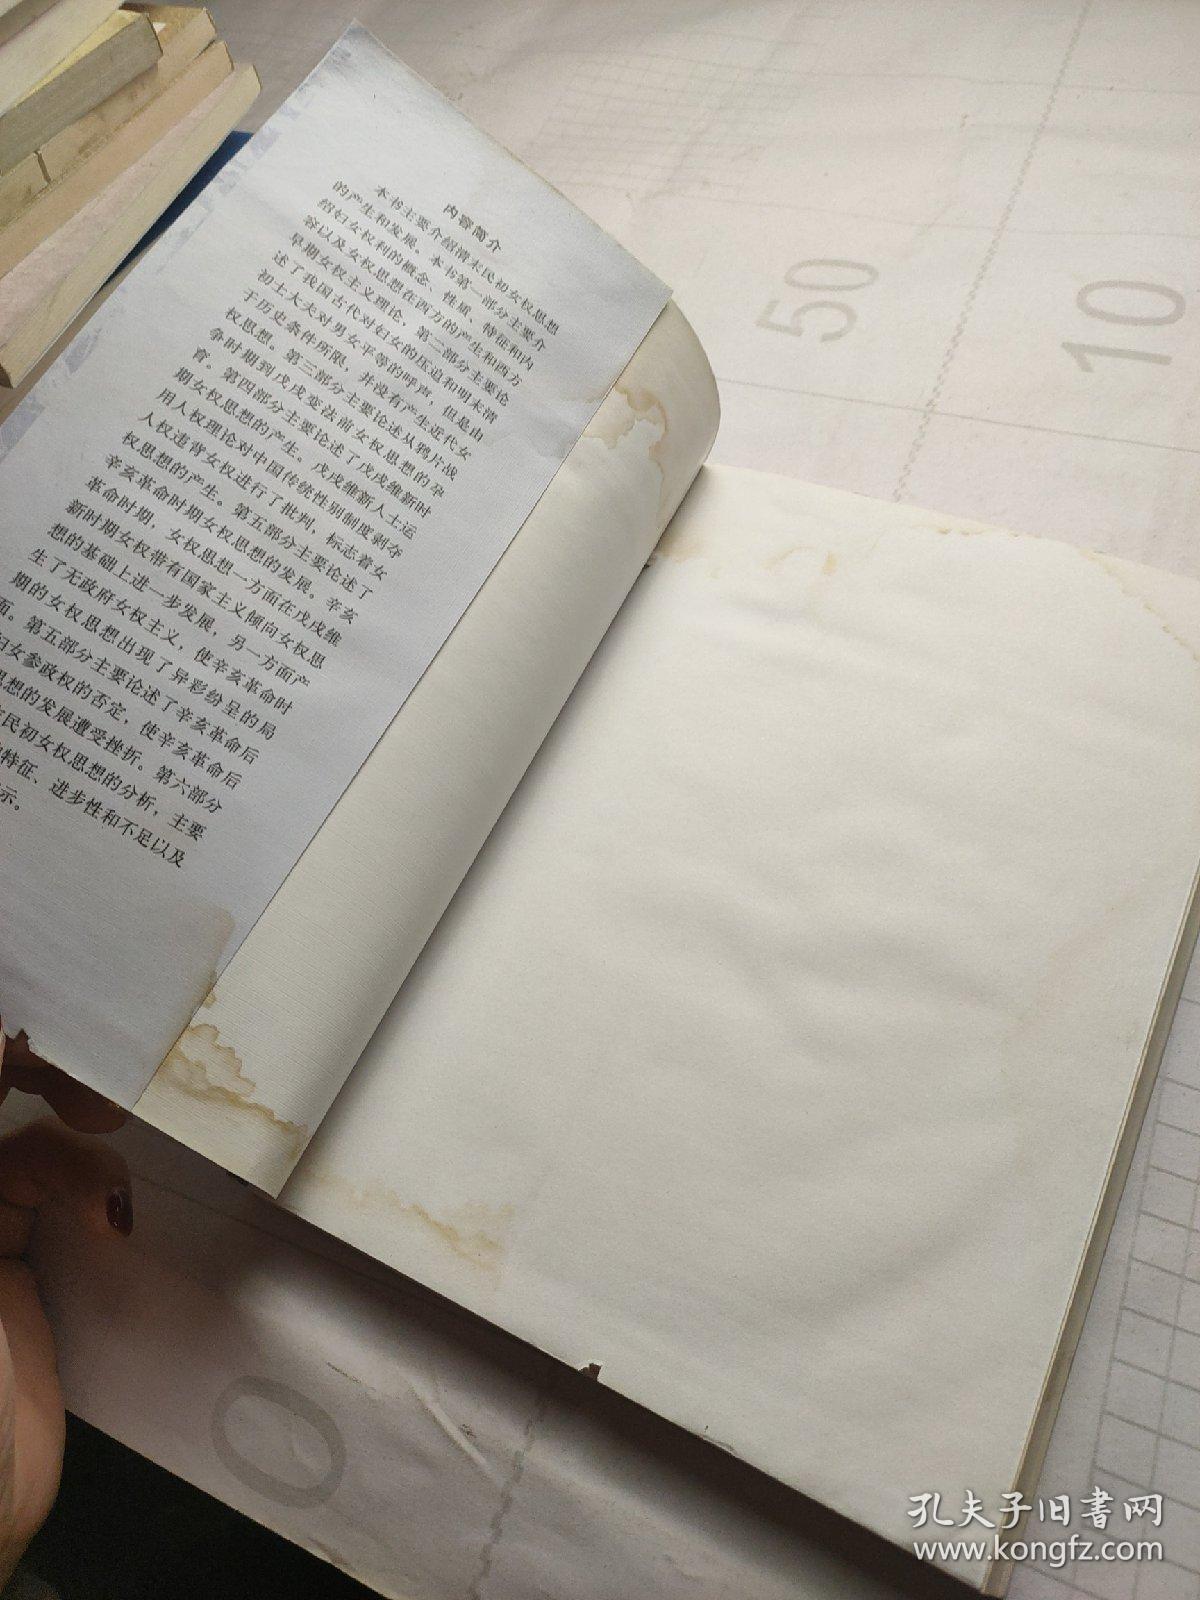 内容简介
本书主要介绍清末民初女权思想
的产生和发展。本书第一部分主要介
绍妇女权利的概念、性质、特征和内
容以及女权思想在西方的产生和西方
早期女权主义理论，第二部分主要论
述了我国古代对妇女的压迫和明末清
初士大夫对男女平等的呼声，但是由
于历史条件所限，并没有产生近代女
权思想。第三部分主要论述从鸦片战
争时期到戊戌变法前女权思想的孕
育。第四部分主要论述了戊戌维新时
期女权思想的产生。戊戌维新人士运
用人权理论对中国传统性别制度剥夺
人权违背女权进行了批判，标志着女
权思想的产生。第五部分主要论述了
辛亥革命时期女权思想的发展。辛亥
革命时期，女权思想一方面在戊戌维
新时期女权带有国家主义倾向女权思
想的基础上进一步发展，另一方面产
生了无政府女权主义，使辛亥革命时
期的女权思想出现了异彩纷呈的局
面。第五部分主要论述了辛亥革命后
妇女参政权的否定，使辛亥革命后
思想的发展遭受挫折。第六部分
民初女权思想的分析，主要
特征、进步性和不足以及
示。
50
10
0
孔夫子旧书网
www.kongfz.com